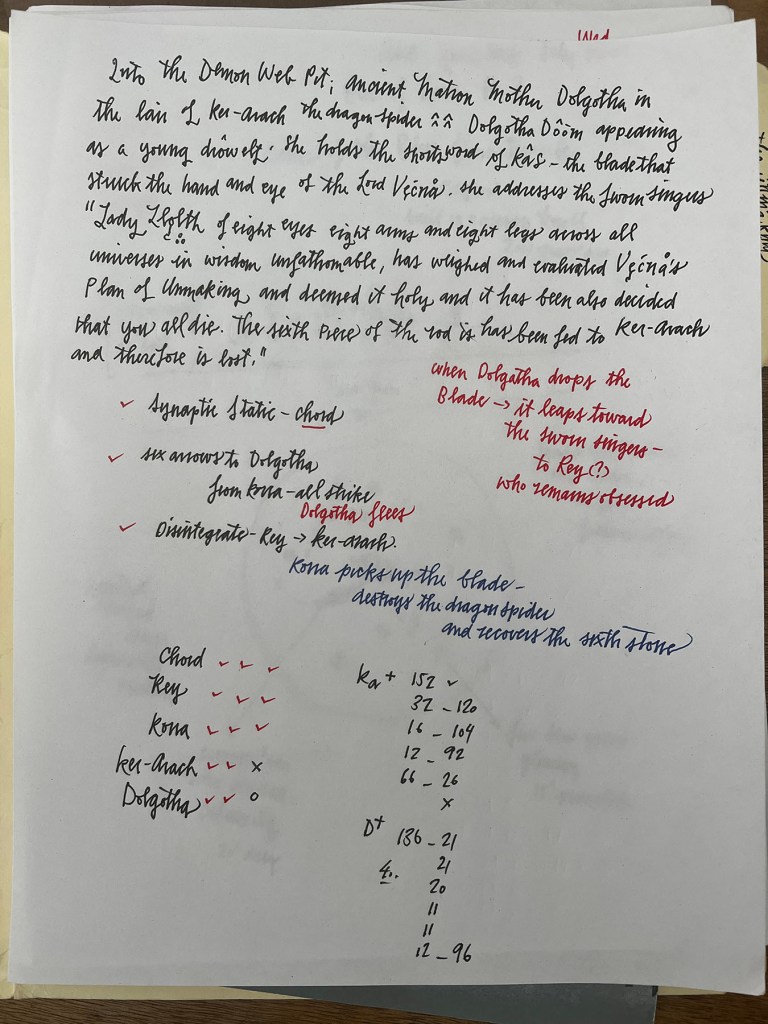 Wed
Into the Demon Web Pit; ancient Matron Mother Dolgotha in
the lair of Ker-arach the dragon-spider ^^ ^^ Dolgotha Dôôm appearing
as a young drôwelf. She holds the shortsword of Kâs – the blade that
struck the hand and eye of the Lord Vęcnå. She addresses the Sworn Singers
"Lady Llolth of eight eyes eight arms and eight legs across all
universes in wisdom unfathomable, has weighed and evaluated Vęcnå's
Plan of Unmaking and deemed it holy and it has been also decided
that you all die. The sixth piece of the rod is has been fed to Ker-arach
and therefore is lost."
when Dolgatha drops the
Blade → it leaps toward
the sworn singers –
to Rey (?)
who remains obsessed
✓ Synaptic Static – chord
✓ six arrows to Dolgotha
from Kona – all strike
Dolgotha flees
✓ Disintegrate – Rey → Ker-arach.
Kona picks up the blade –
destroys the dragon spider
and recovers the sixth stone
Chord ✓ ✓ ✓
Rey ✓ ✓ ✓
Kona ✓ ✓ ✓
Ker-Arach ✓ ✓ x
Dolgotha ✓ ✓ o
Ka + 152 ✓
32 – 120
16 – 104
12 – 92
66 – 26
x
D+ 136 – 21
4. 21
20
11
11
12 – 96